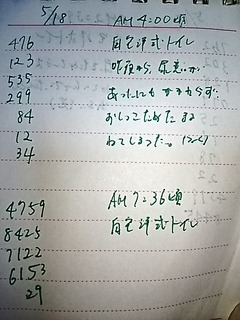 5/18 AM 4:00頃
476 自宅洋式トイレ
123 昨夜から、尿意が
535 あったにもかかわらず、
299
84 おしっこためたまま
12 ねてしまった。
34
4759 AM 7:36頃
8425 自宅洋式トイレ
7122
6153
29